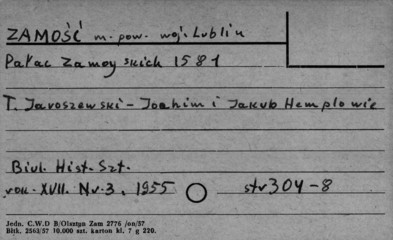 ZAMOŚĆ m. pow. woj. Lublin
Pałac Zamoyskich 1581
T. Jaroszewski - Joahim i Jakub Hemplowie
Biul. Hist. Szt.
rok. XVII. Nr 3, 1955 str 304-8
Jedn. C.W.D B/Olsztyn Zam 2776 /on/57
Błtk. 2563/57 10.000 szt. karton kl. 7 g 220.